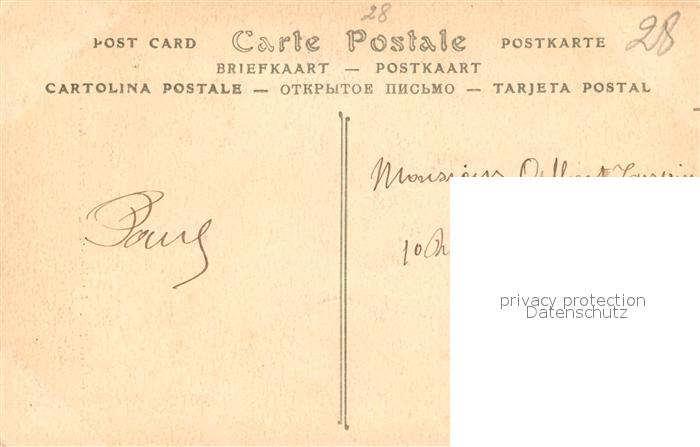 28
POST CARD Carte Postale POSTKARTE 28
BRIEFKAART — POSTKAART
CARTOLINA POSTALE — ОТКРЫТОЕ ПИСЬМО — TARJETA POSTAL
Monsieur Albert
10
Paul
privacy protection
Datenschutz